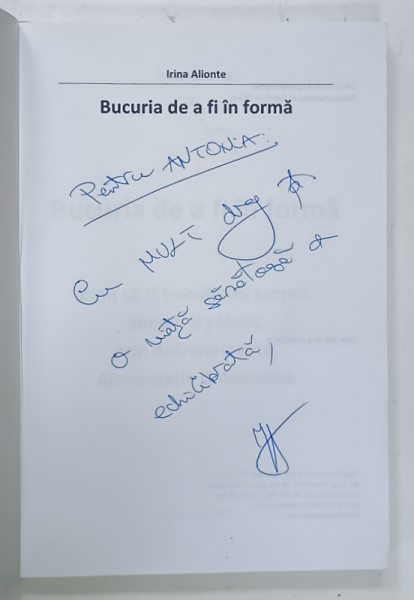 Irina Alionte
Bucuria de a fi în formă
Pentru ANTONIA:
Cu MULT drag &
o viață sănătoasă &
echilibrată,